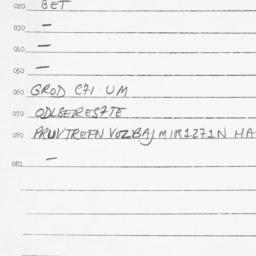 020 BET
030 —
040 —
050 —
060 GROD C71 UM
070 ODLBERES7TE
080 PRUVTREFNVOZBAJMIR1271N HA
081 —